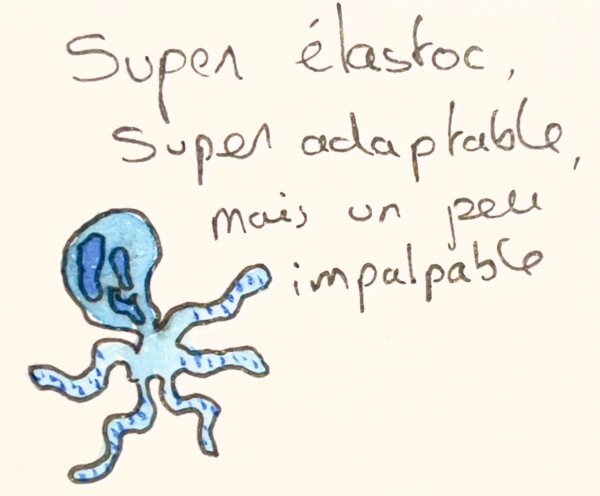 Super élastoc,
super adaptable,
mais un peu
impalpable